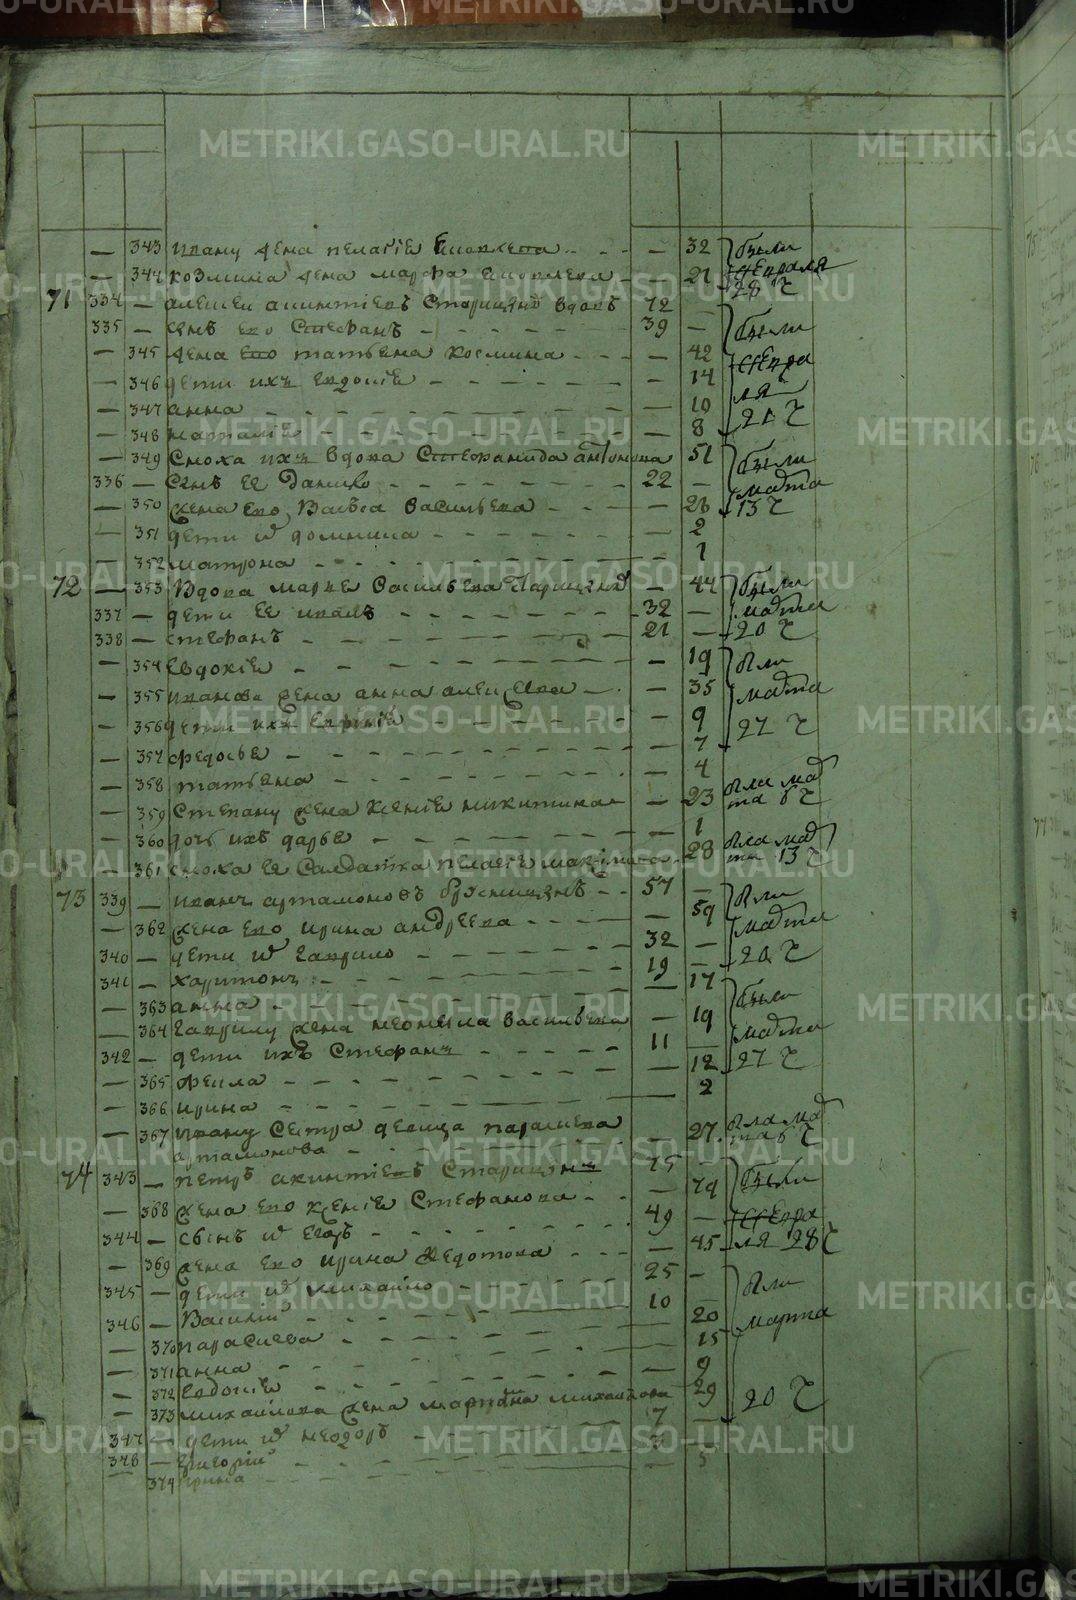 — 343 Ивану жена пелагіѣ Яковлева — 32 были
— 344 козмина жена марфа Яковлева — 21 февраля 28 Ч
71 334 — алексеи акинтіевъ Старицынъ вдовъ 72
335 — сынъ ево Стефанъ 39 — были
— 345 жена ево татьяна космина — 42 февра
— 346 дети ихъ евдокіѣ — 14 ля
— 347 анна — 10 21 Ч
— 348 наталіѣ — 8
— 349 Сноха ихъ вдова Стефанида антонова 51 были
336 — сынъ ее Данило 22 — марта
— 350 жена ево васильева — 23 13 Ч
— 351 дети и домника — 2
— 352 матрона — 1
72 — 353 Вдова марья васильева — 44 были
337 — дети ее иванъ 32 — марта
338 — стефанъ 21 — 20 Ч
— 354 Евдокіѣ — 19 были
— 355 иванова жена анна алексѣева — 35 марта
— 356 дети ихъ — 9 27 Ч
— 357 федосья — 7
— 358 татьяна — 4
— 359 Степану жена ксеніѣ никитина — 23 была марта 6 Ч
— 360 дочь ихъ дарья — 1
— 361 сноха ее Салдатка пелагіѣ максимова 28 была марта 13 Ч
73 339 — иванъ артамоновъ 57 — были
— 362 жена ево ирина андреева — 59 марта
340 — дети и гаврило 32 — 20 Ч
341 — харитонъ 19
— 363 анна — 17 были
— 364 гаврилу жена неонила васильева — 19 марта
342 — дети ихъ Стефанъ 11 27 Ч
— 365 фекла — 12
— 366 ирина — 2
— 367 ивану сестра девица парасковья — 27 была марта 6 Ч
артамонова
74 343 — петръ акинтіевъ Старицынъ 75 — были
— 368 жена ево ксеніѣ Стефанова — 74 февра
344 — сынъ и Егоръ 49 — ля 28 Ч
— 369 жена ево ирина федотова — 45
345 — дети и михайло 25 — были
346 — Василій 10 марта
— 370 парасковья — 20 20 Ч
— 371 анна — 15
— 372 евдокіѣ — 9
— 373 михайлова жена марфа михайлова 29
347 — дети и неодоръ 7 —
348 — григорій
374 ирина — 5
METRIKI.GASO-URAL.RU